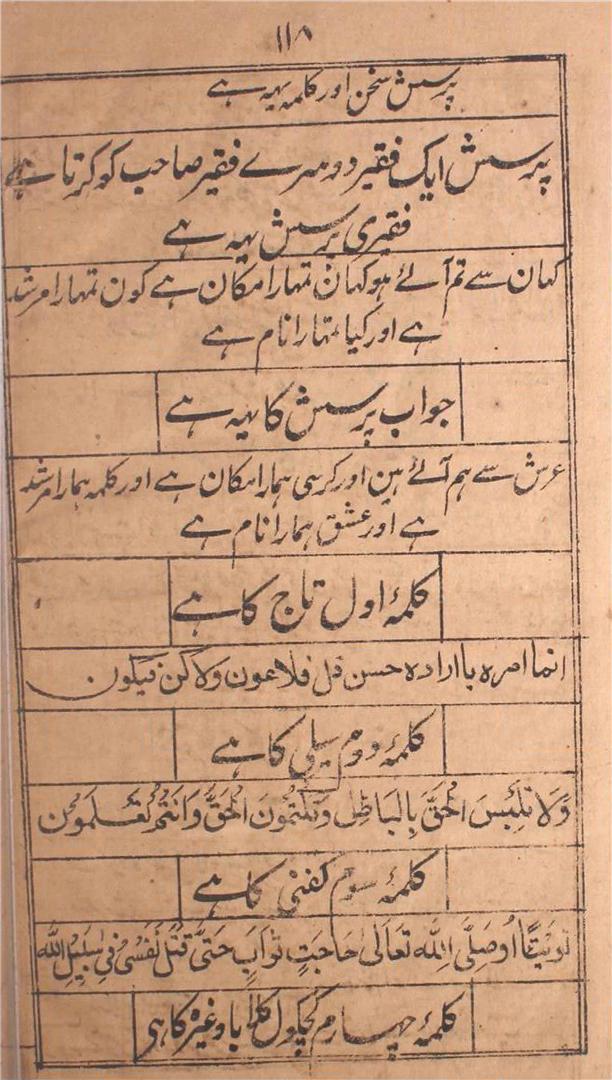 ۱۱۸
پرسش سخن اور کلمہ یہہ ہے
پرسش ایک فقیر دوسرے فقیر صاحب کو کرتا ہے
فقیری پرسش یہہ ہے
کہان سے تم آئے ہو کہان تمہارا مکان ہے کون تمہارا مرشد
ہے اور کیا تمہارا نام ہے
جواب پرسش کا یہہ ہے
عرش سے ہم آئے ہین اور کرسی ہمارا مکان ہے اور کلمہ ہمارا مرشد
ہے اور عشق ہمارا نام ہے
کلمۂ اول تاج کا ہے
انما امرہ باارادہ حسن قل فلا عون ولا کن فیکون
کلمۂ دوم سیلی کا ہے
وَلَا تَلْبِسَ الْحَقَّ بِالْبَاطِلِ وَتَكْتُمُونَ الْحَقَّ وَاَنْتُمْ تَعْلَمُوْن
کلمۂ سوم کفنی کا ہے
اُوصَلِّی اللّٰه تَعَالٰی حَاجَبَتٍ ثَوَابٍ حَتّٰی قَتْلَ نَفْسِیْ فِیْ سَبِیْلِ اللّٰه
کلمۂ چہارم کچکول وغیرہ کا ہی